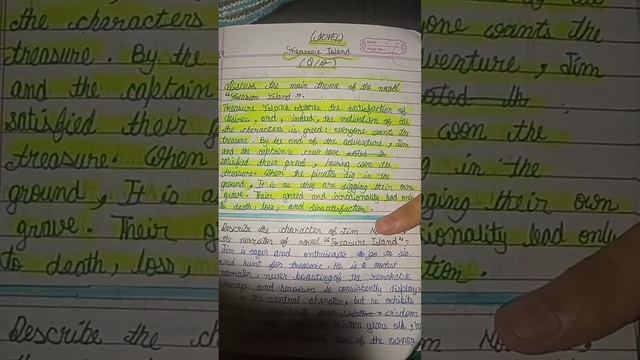 (NOVEL)
Treasure Island
(Q/A)
Discuss the main theme of the novel
"Treasure Island".
Treasure Island explores the satisfaction of
desires, and, indeed, the motivation of all
the characters is greed: everyone wants the
treasure. By the end of the adventure, Jim
and the captain's crew have
satisfied their greed, having won the
treasure. When the pirates dig in the
ground, It is as they are digging their own
grave. Their greed and irrationality lead only
to death, loss, and dissatisfaction.
Describe the character of Jim
the narrator of novel "Treasure Island"?
Jim is eager and enthusiastic to go to sea
and hunt for treasure. He is a modest
narrator, never boasting of the remarkable
courage and heroism he consistently displays
is the central character, but he exhibits
and wisdom
thirteen years old, he
son of the owner